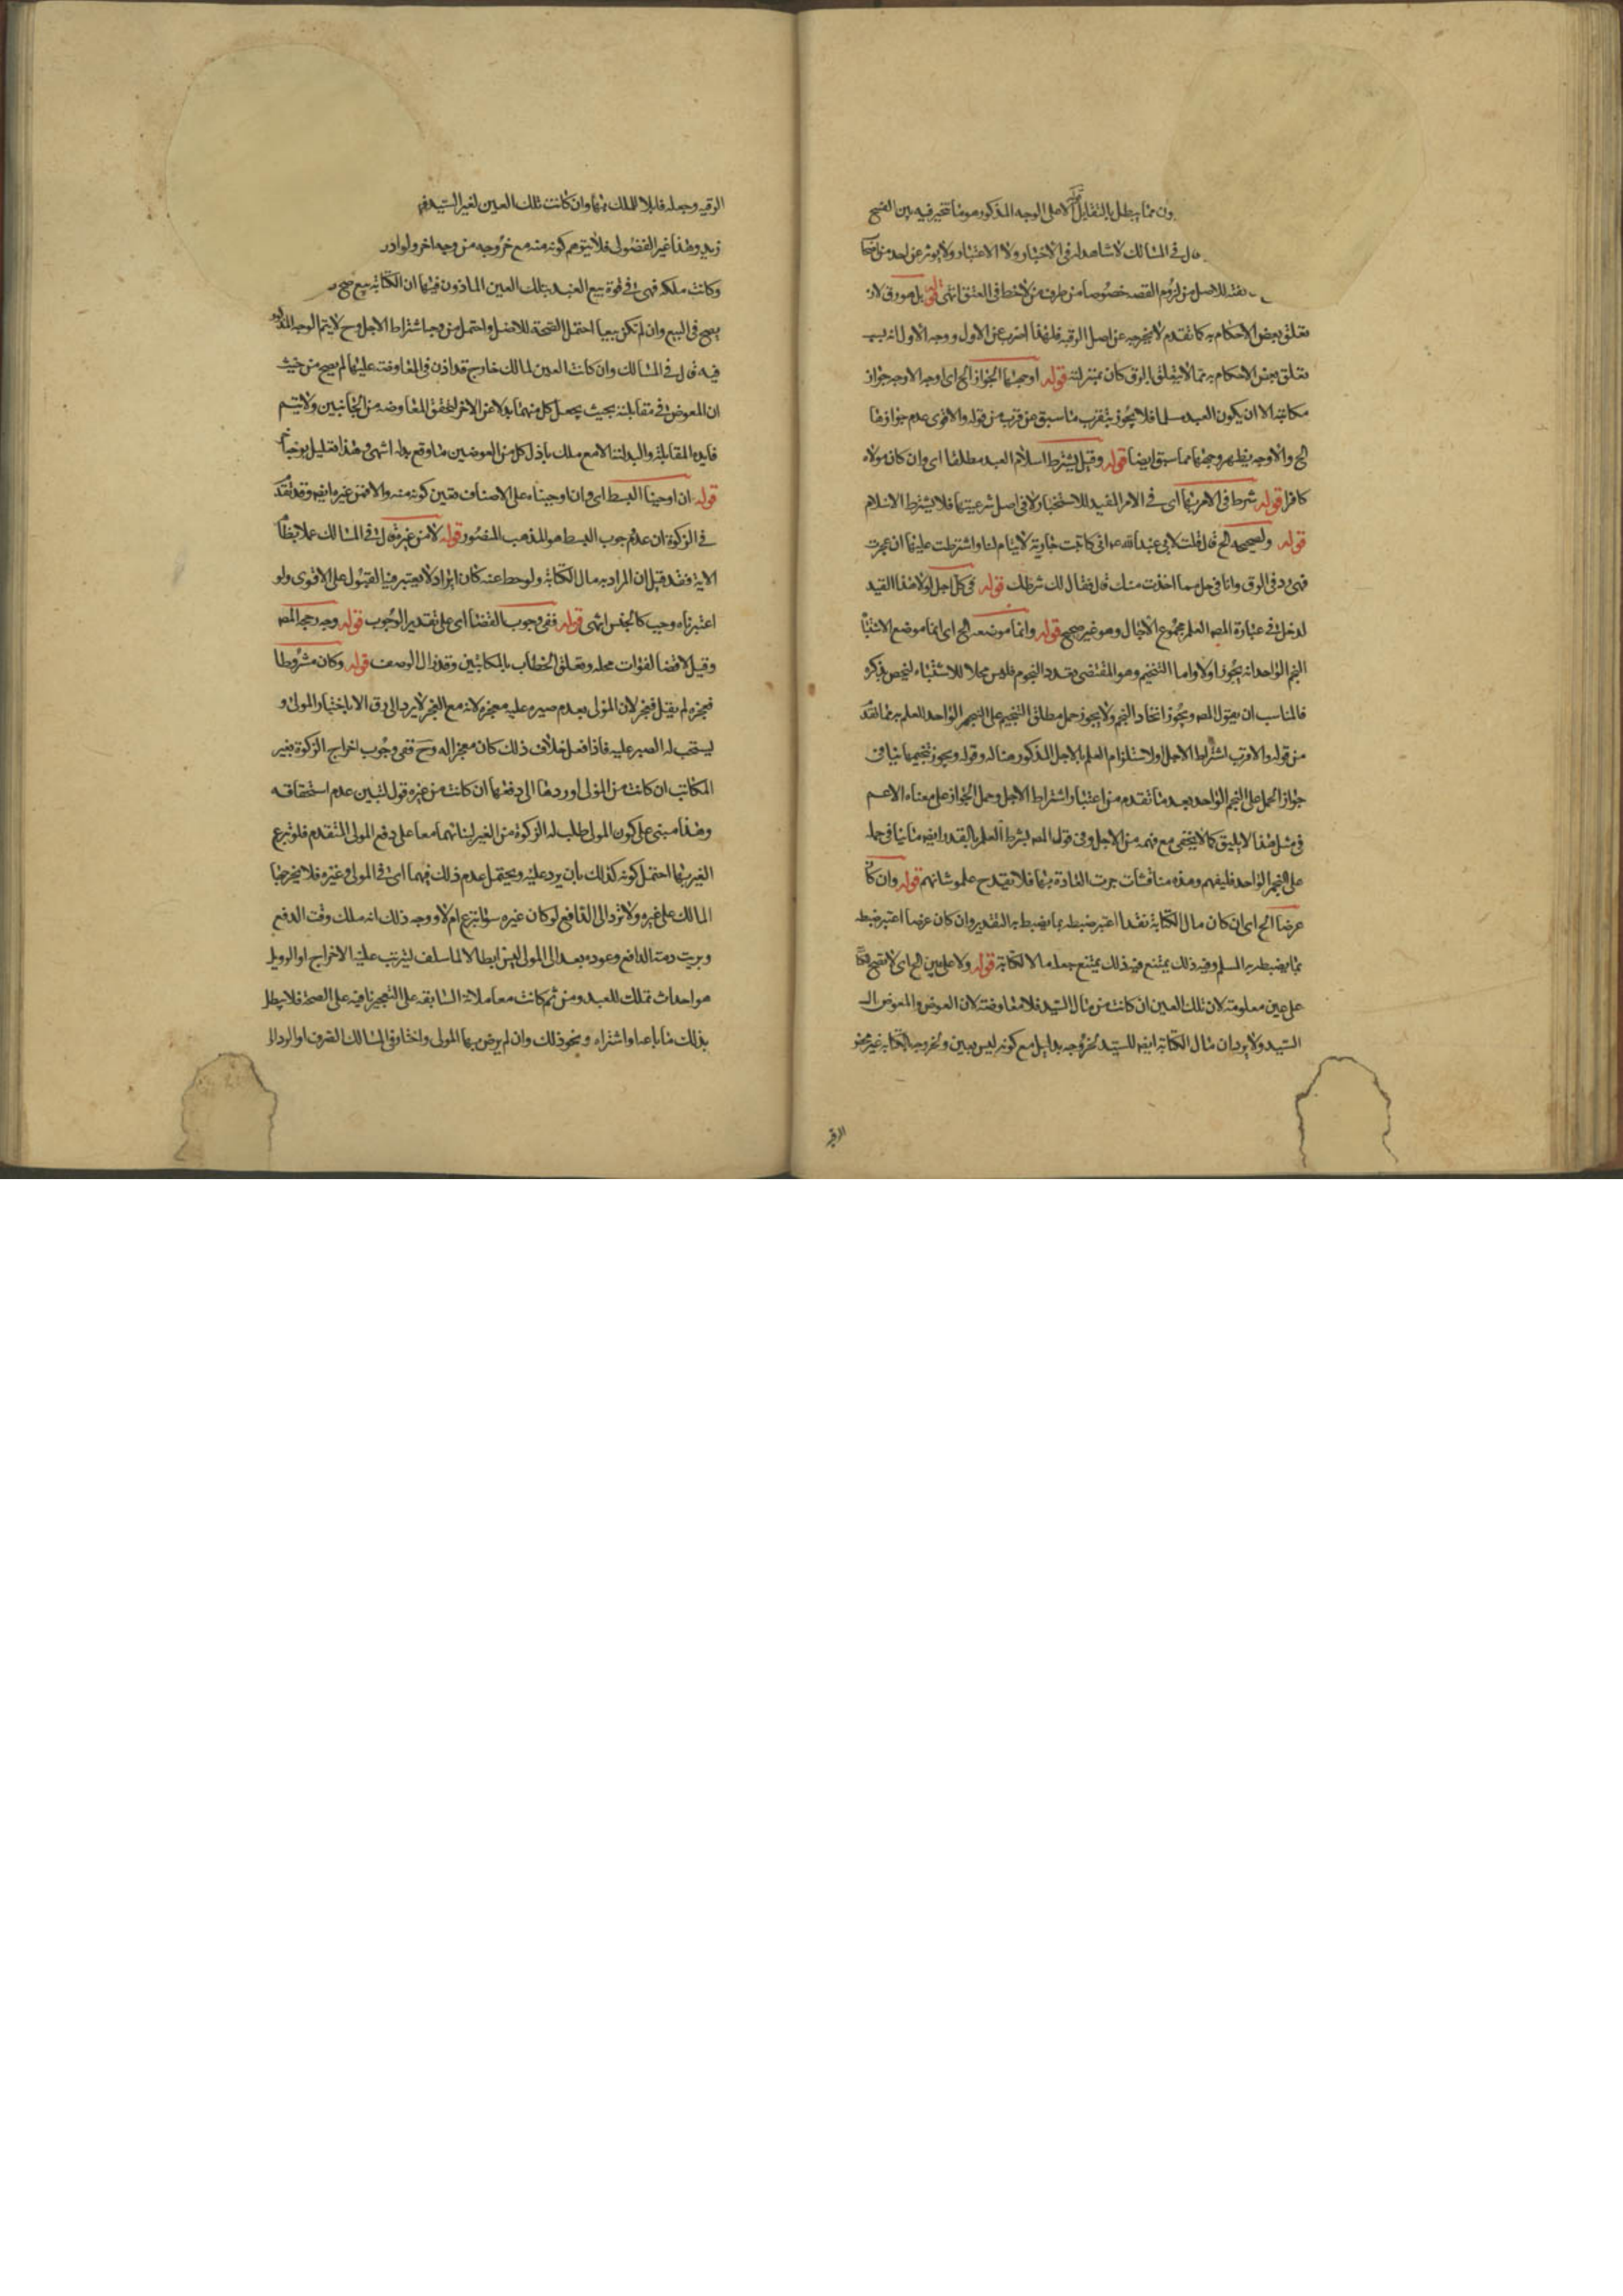 ون مما يبطل بالتقابل لا على الوجه المذكور هو مما تتخير فيه بين الفسخ
قال في المسالك لا شاهد له في الاخبار ولا الاعتبار ولا يؤثر عن احد من
للاصل من لزوم القصد خصوصا من طرف من لاحظ في العتق انتهى قوله بل هو رق لان
تعلق بعض الاحكام به كما تقدم لا يخرجه عن اصل الرقية فلهذا اضرب عن الاول ووجه الاول انه
تعلق بعض الاحكام به مما لا يتعلق بالرق كان بمنزلته قوله اوجهها الجواز الخ اي اوجه الاوجه جواز
مكاتبته الا ان يكون العبد مسلما فلا يجوز بتقرب ما سبق عن قرب من قوله والاقوى عدم جوازها
الخ والاوجه يظهر وجهها مما سبق ايضا قوله وقيل يشترط اسلام العبد مطلقا اي وان كان مولاه
كافرا قوله شرط في الامر بها اي في الامر المفيد للاستحباب لا في اصل شرعيتها فلا يشترط الاسلام
قوله ولصحيحه الخ قال قلت لابي عبد الله ع اني كاتبت جارية لايتام لنا واشترطت عليها ان عجزت
فهي رد في الرق وانا في حل مما اخذت منك قال فقال لك شرطك قوله في كل اجل لولا هذا القيد
لدخل في عبارة المص العلم بمجموع الاجال وهو غير صحيح قوله وانما موضعه الخ اي انما موضع الاشتباه
النجم الواحد انه يجوز اولا واما التنجيم وهو المقتضى بتعدد النجوم فليس محلا للاشتباه ليخص بذكره
فالمناسب ان يقول المص ويجوز اتحاد النجم ولا يجوز حمل مطلق التنجيم على النجم الواحد للعلم به مما تقدم
من قوله والاقرب اشتراط الاجل ولاستلزام العلم بالاجل المذكور هنا له وقوله ويجوز تنجيمها ينافي
جواز الحمل على النجم الواحد بعد ما تقدم من اعتبار اشتراط الاجل وحمل الجواز على معناه الاعم
في مثل هذا لا يليق كما لا يخفى مع فهمه من الاجل وفي قول المص بشرط العلم بالقدر ايضا ما ينافي حمله
على النجم الواحد فليفهم وهذه مناقشات جرت العادة بها فلا تقدح علو شانهم قوله وان كان
عرضا الخ اي ان كان مال الكتابة نقدا اعتبر ضبطه بما يضبط به النقد وان كان عرضا اعتبر ضبطه
بما يضبط به المسلم وفيه ذلك يمتنع فيه ذلك يمتنع جعله مال الكتابة قوله ولا على عين الخ اي لا تصح
على عين معلومة لان تلك العين ان كانت من مال السيد فلا معاوضة لان العوض والمعوض ال
السيد ولا يرد ان مال الكتابة ايضا للسيد لخروجه بدليل مع كونه ليس بعين ولخروجه بالكتابة غير
الرقية
الرقية وجعله قابلا للملك بها وان كانت تلك العين لغير السيد فهي
زيد وهذا غير الفضولى فلا يتوهم كونه منه مع خروجه من وجه اخر ولو اذن
وكانت ملكه فهي في قوة بيع العبد بتلك العين الماذون فيها ان الكتابة بيع صح
يصح في البيع وان لم تكن بيعا احتمل الصحة للاصل واحتمل من وجب اشتراط الاجل وح لا يتم الوجه المذكور
فيه قال في المسالك وان كانت العين لمالك خارج قد اذن في المعاوضة عليها لم يصح من حيث
ان المعوض في مقابلته بحيث يجعل كل منهما بدلا عن الاخر لتحقق المعاوضه من الجانبين ولا يتم
فايده المقابلة والبدلية الا مع ملك باذل كل من العوضين ما وقع بدله انتهى وهذا تعليل
قوله ان اوجبنا البسط اي وان اوجبناه على الاصناف تعين كونه منه والا فمن غيره ايضا وقد تقدم
في الزكوة ان عدم وجوب البسط هو المذهب المنصور قوله لا من غيره قال في المسالك عملا بظاهر
الاية فقد قيل ان المراد به مال الكتابة ولو حط عنه كان ابراء لا يعتبر فيه القبول على الاقوى ولو
اعتبرناه وجب كالجنس انتهى قوله ففي وجوب القضاء اي على تقدير الوجوب قوله وجه رجحه المص
وقيل لا قضا لفوات محله وتعلق الخطاب بالمكاتبين وقد زال الوصف قوله وكان مشروطا
فعجزه لم يقل فعجز لان المولى بعدم صبره عليه معجزه لانه مع العجز لا يرد الى رق الا باختيار المولى و
يستحب له الصبر عليه فاذا فعل خلاف ذلك كان معجزا له وح ففي وجوب اخراج الزكوة لغير
المكاتب ان كانت من المولى او ردها الى دفعها ان كانت من غيره قول لتبين عدم استحقاقه
وهذا مبنى على كون المولى طلب له الزكوة من الغير لبنائهما معا على دفع المولى المتقدم فلو تبرع
الغير بها احتمل كونه كذلك بان يرد عليه ويحتمل عدم ذلك فيهما اي في المولى وغيره فلا يخرجها
المالك على غيره ولا ترد الى الدافع لو كان غيره سواء تبرع ام لا ووجه ذلك انه ملك وقت الدفع
وبريت ذمة الدافع وعوده بعد الى المولى ليس ابطالا لما سلف ليترتب عليه الاخراج او الرد بل
هو احداث تملك للعبد ومن ثم كانت معاملاته السابقه على التعجيز نافيه على الصحة فلا يبطل
بذلك ما باعه او اشتراه ونحو ذلك وان لم يرض بها المولى واختار في المسالك الصرف او الرد الى